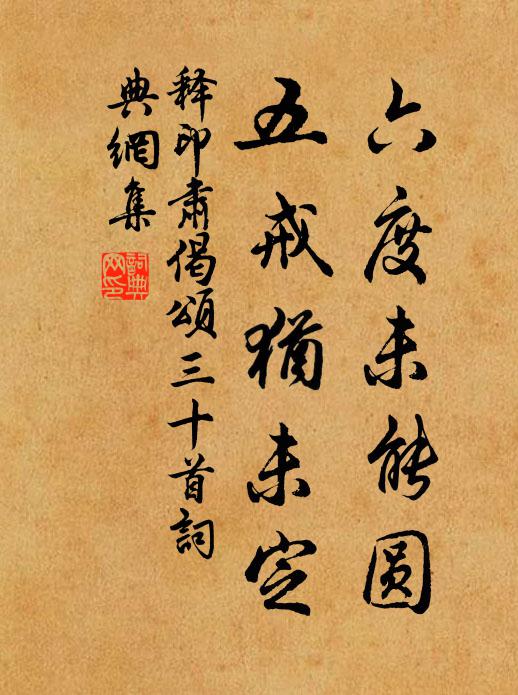 六度未能圆
五戒犹未定
释印肃偈颂三十首词
典網集
詞典網印